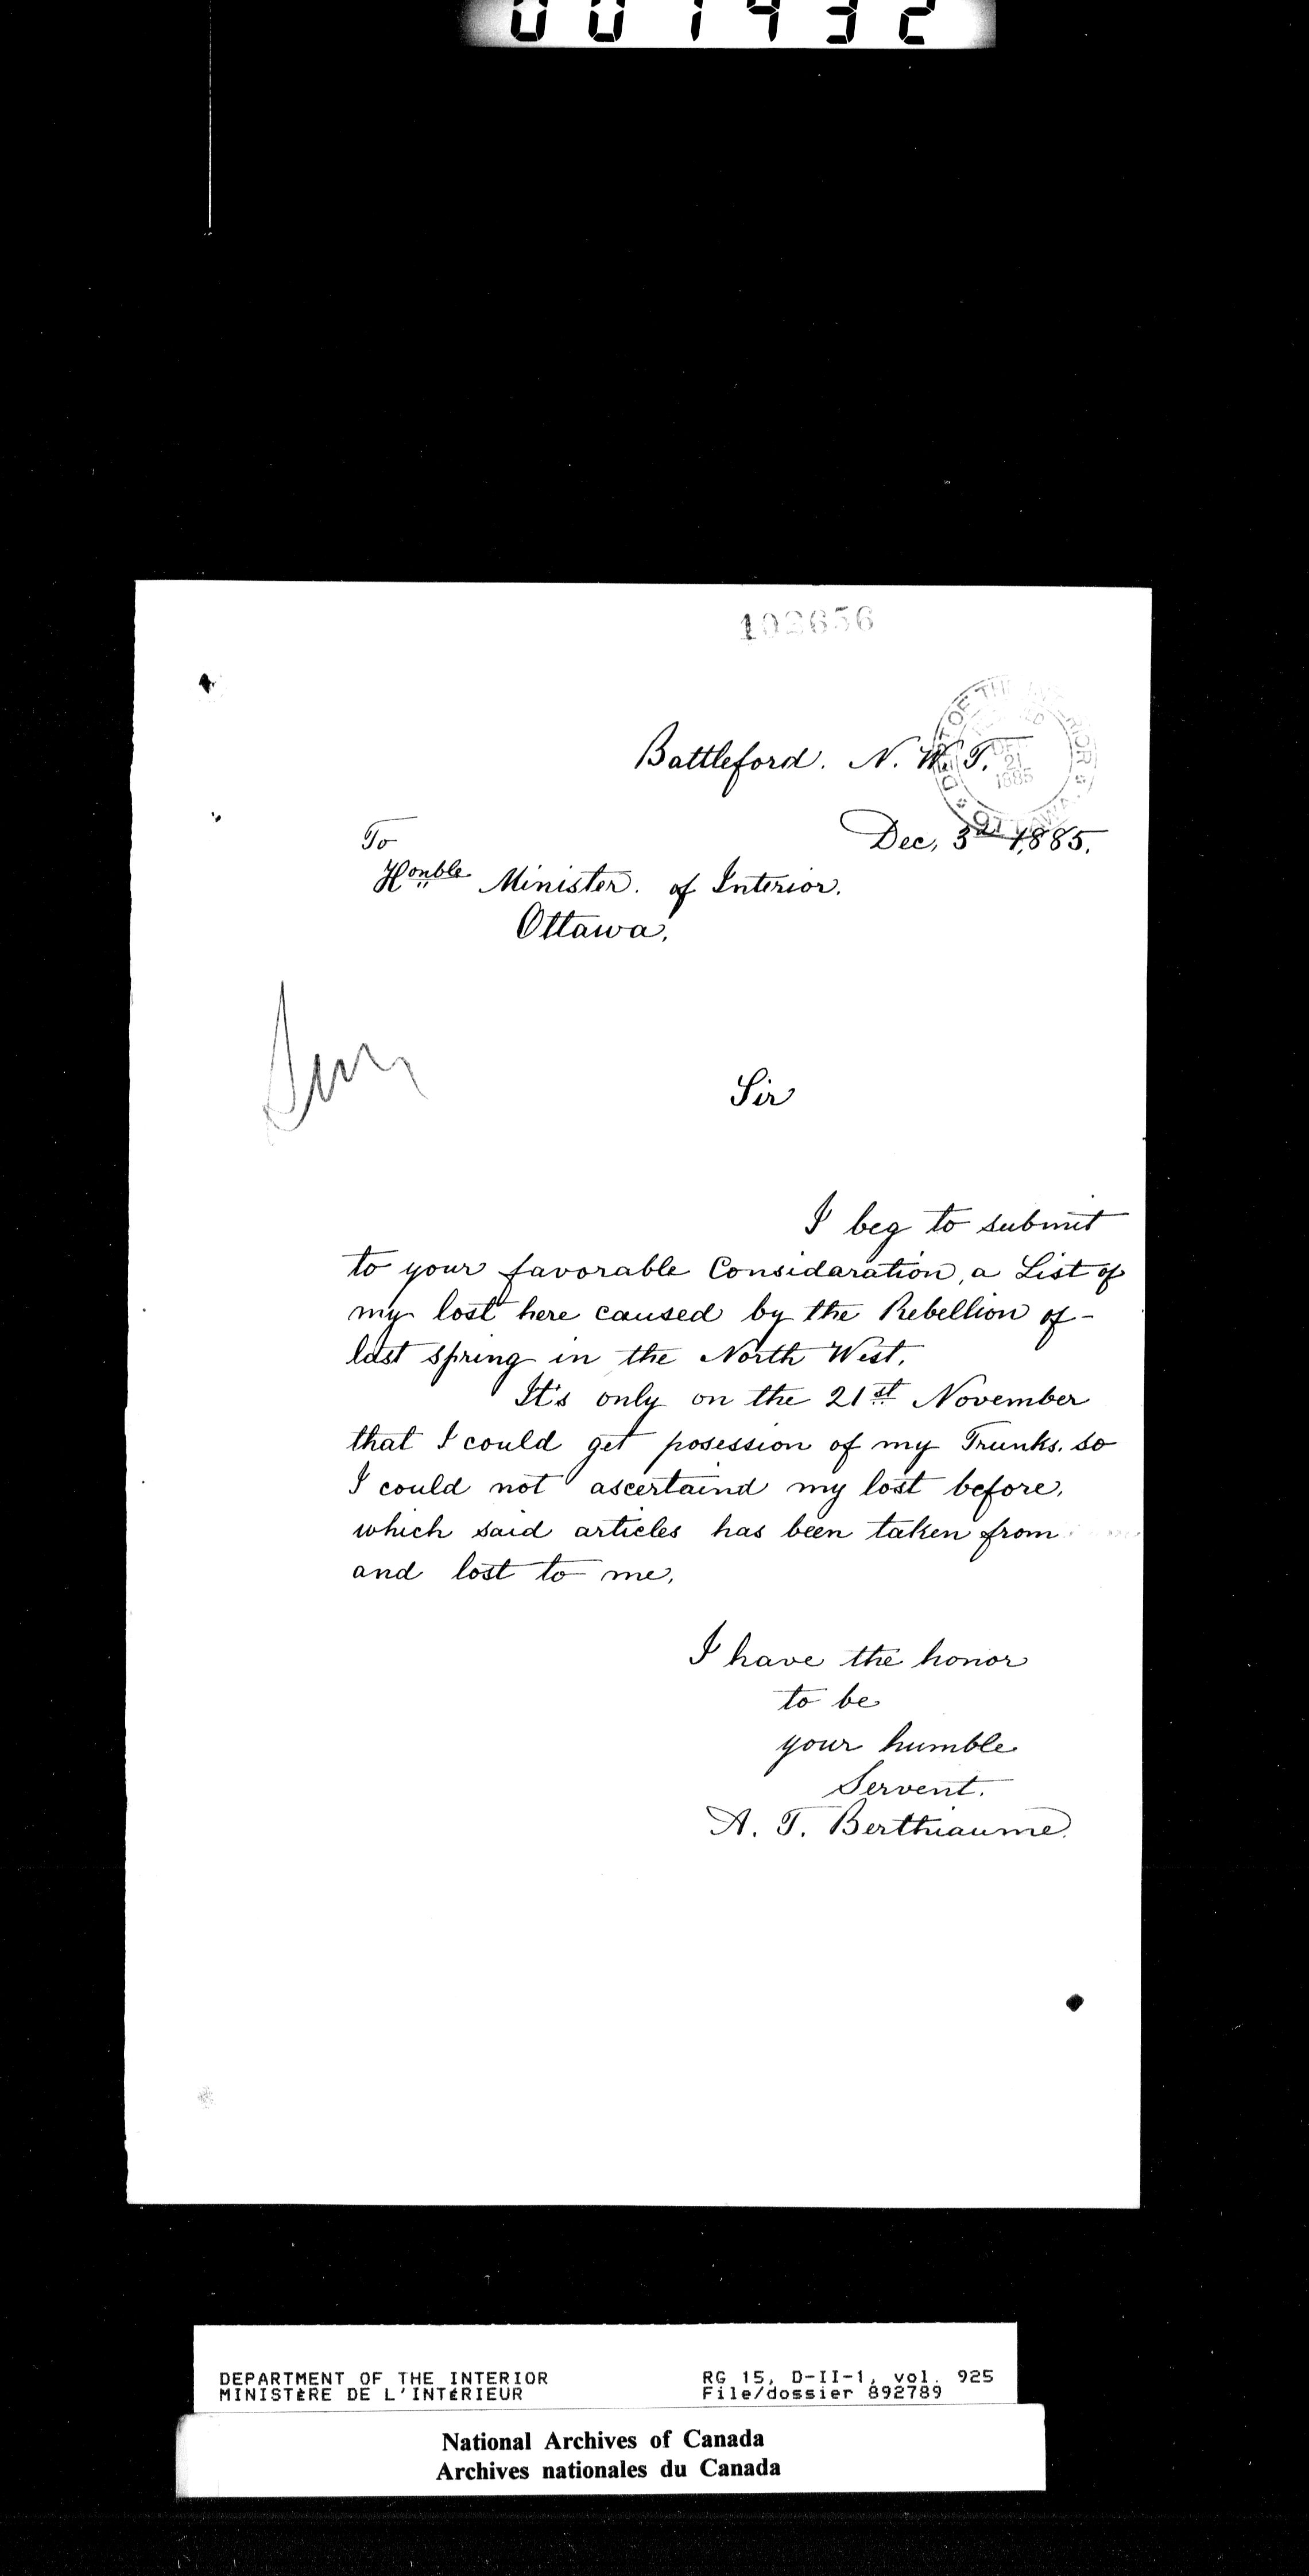 001432
102656
DEPT OF THE INTERIOR
OTTAWA
21
1885
Battleford. N. W. T.
Dec, 3d 1885.
To
Honble Minister. of Interior.
Ottawa,
Sir
I beg to submit
to your favorable Considaration, a List of
my lost here caused by the Rebellion of-
last spring in the North West.
It's only on the 21st November
that I could get posession of my Trunks. so
I could not ascertaind my lost before,
which said articles has been taken from
and lost to me,
I have the honor
to be
your humble
Servent.
A. T. Berthiaume.
DEPARTMENT OF THE INTERIOR RG 15, D-II-1, vol. 925
MINISTÈRE DE L'INTÉRIEUR File/dossier 892789
National Archives of Canada
Archives nationales du Canada